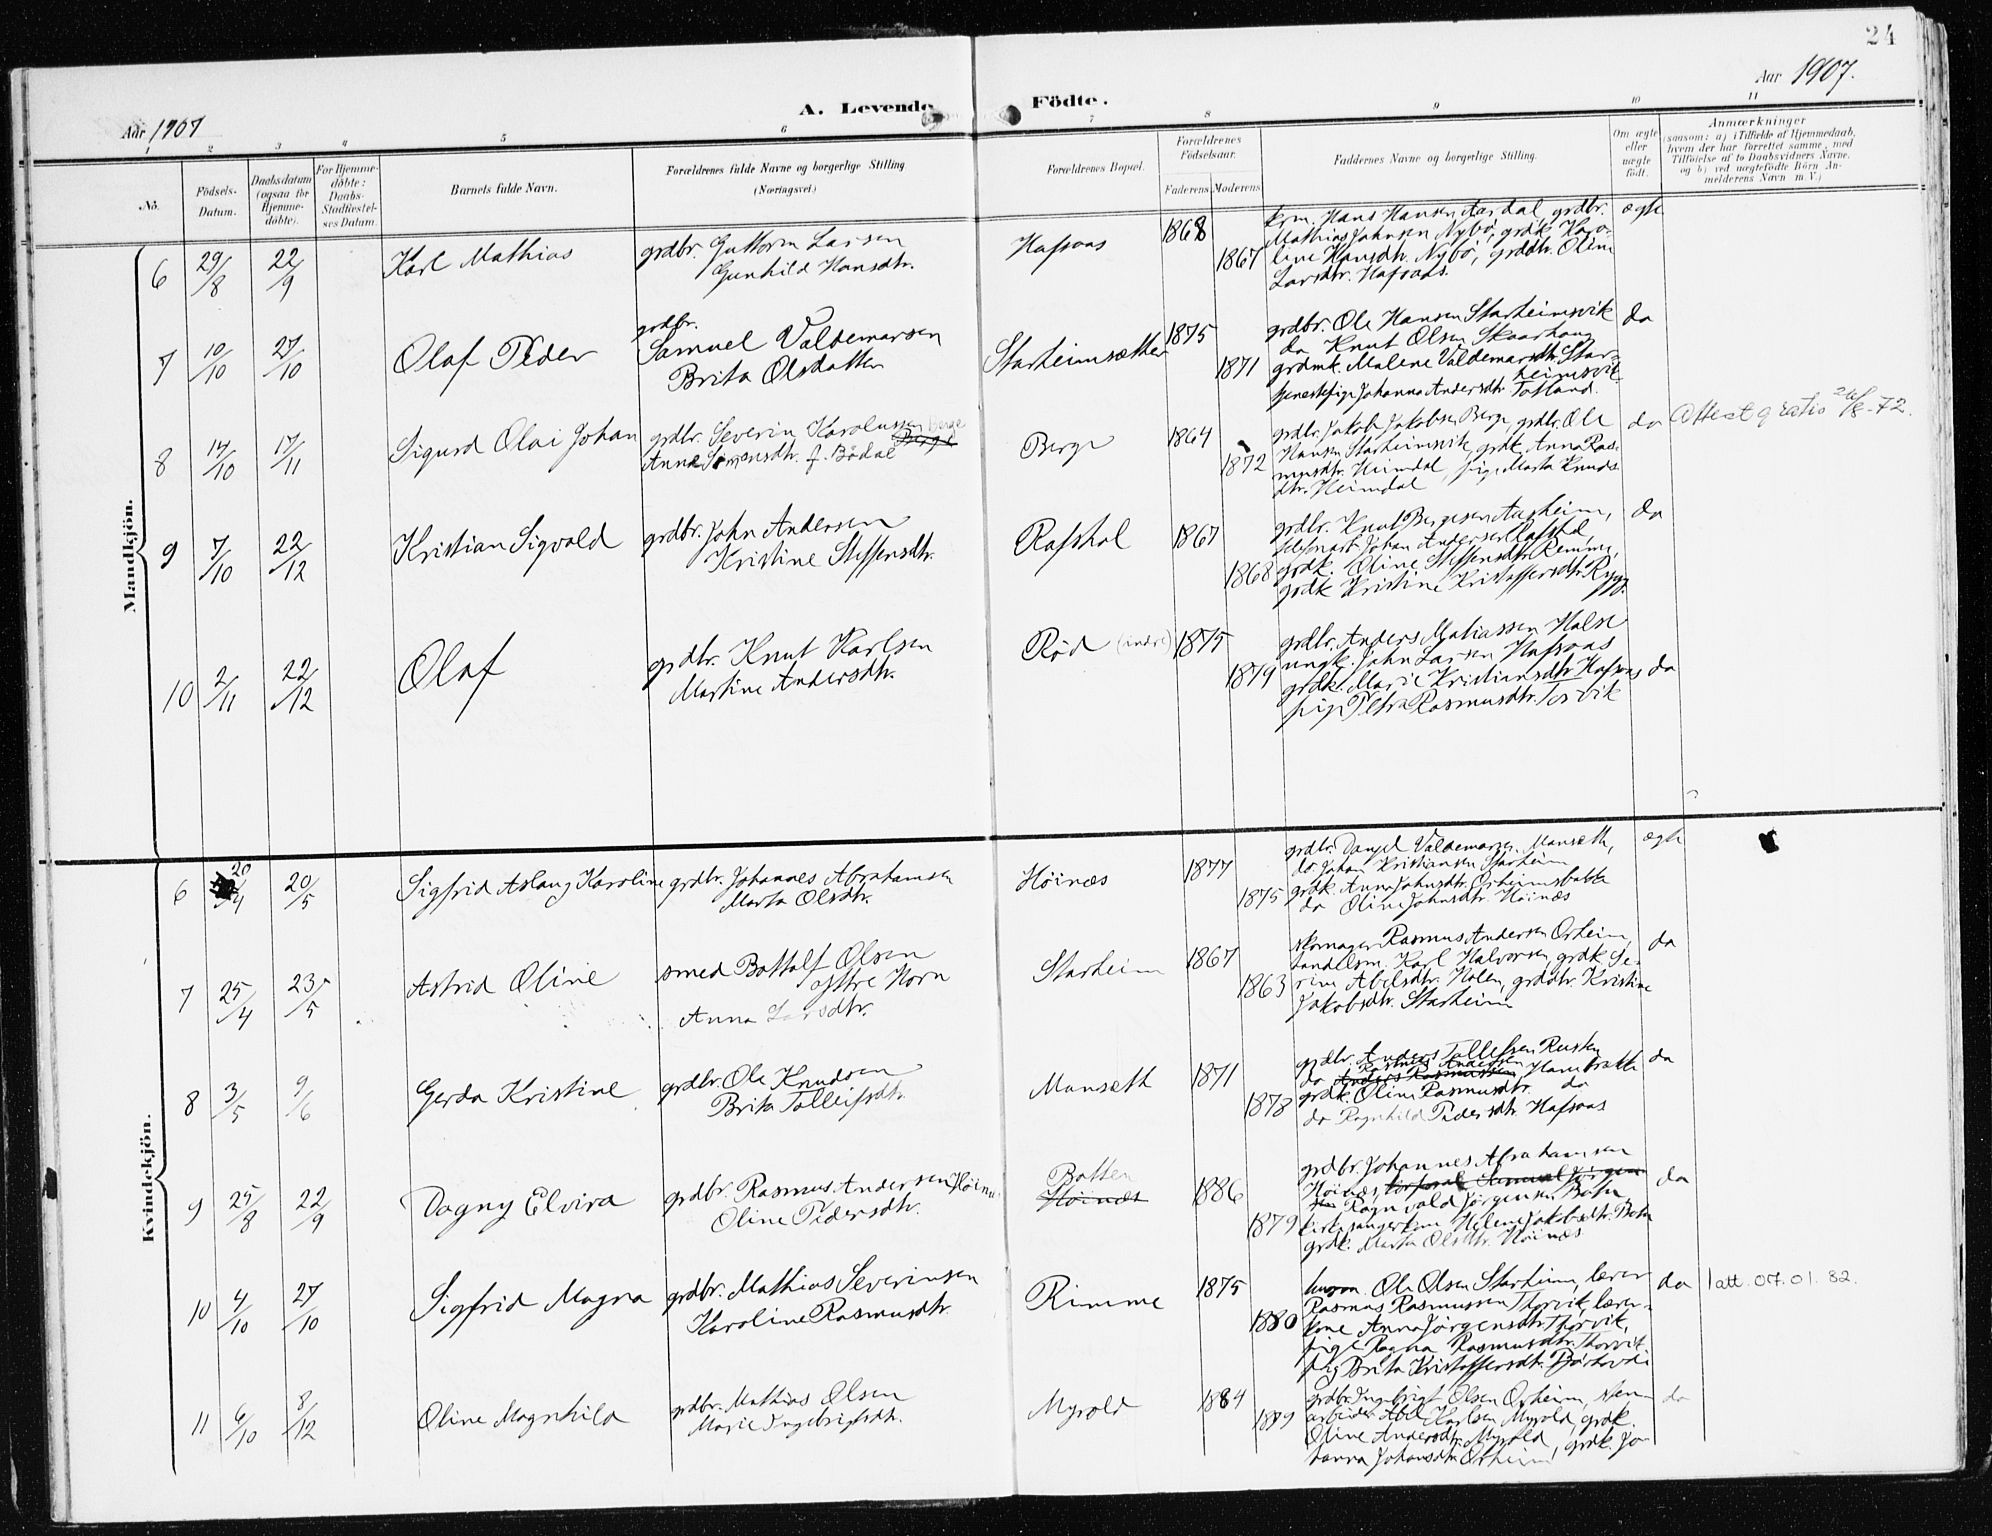 24
Aar 1907
A. Levende Födte.
Aar 1907.
1 2 3 4 5 6 7 8 9 10 11
Nö.
Födsels-Datum.
Daabsdatum (ogsaa for Hjemme-döbte).
For Hjemme-döbte: Daabs-Stadfæstel-ses Datum.
Barnets fulde Navn.
Forældrenes fulde Navne og borgerlige Stilling
(Næringsvei.)
Forældrenes Bopæl.
Forældrenes Födselsaar.
Faderens Moderens
Faddernes Navne og borgerlige Stilling.
Om ægte eller uægte födt.
Anmærkninger
(saasom: a) i Tilfælde af Hjemmedaab,
hvem der har forrettet samme, med
Tilföielse af to Daabsvidners Navne,
og b) ved uægtefödte Börn An-
melderens Navn m. V.)
Mandkjön.
6 29/8 22/9 Karl Mathias
grdbr. Guttorm Larsen
Gunhild Hansdtr.
Hafsaas 1868 1867
kom. Hans Hansen Aardal, grdbr.
Mathias Johnsen Nybö, grdk. Karo-
line Hansdtr. Nybö, grddtr. Oline
Larsdtr. Hafsaas.
ægte
7 10/10 27/10 Olaf Peder
grdbr.
Samuel Valdemarsen
Brita Olsdatter
Starheimsæther 1875 1871
grdbr. Ole Hansen Starheimsvik
do Knut Olsen Skaarhaug
grdmk. Malene Valdemarsdtr. Star-
heimsvik
tjenestepige Johanna Andersdtr. Totland.
do
8 14/10 17/11 Sigurd Olai Johan
grdbr. Severin Karolussen Berge
Anne Simonsdtr. f. Bödal Berge
Berge 1864 1872
grdbr. Jakob Jakobsen Berge, grdbr. Ole
Hansen Starheimsvik, grdk. Anna Ras-
musdtr. Heimdal, pige Marta Knuds-
dtr. Heimdal
do Attest gratis 26/8-72.
9 7/10 22/12 Kristian Sigvald
grdbr. John Andersen
Kristine Steffensdtr.
Rafstal 1867 1868
grdbr. Knut Bergesen Aasheim,
Johan Andersen Rafstal,
grdk. Oline Steffensdtr. Remme,
grdk Kristine Kristoffersdtr. Rygg.
do
10 2/11 22/12 Olaf
grdbr. Knut Karlsen
Martine Andersdtr.
Röd (indre) 1875 1879
grdbr. Anders Matiassen Halse
ungk. John Larsen Hafsaas
grdk. Marie Kristiansdtr. Hafsaas
pige Petra Rasmusdtr. Torvik
do
Kvindekjön.
6 20/4 20/5 Sigfrid Aslaug Karoline
grdbr. Johannes Abrahamsen
Marta Olsdtr.
Höinæs 1877 1875
grdbr. Danjel Valdemarsen Manseth,
do. Johan Kristiansen Starheim
grdk. Anna Johnsdtr. Orheimsbakke
do Oline Johnsdtr. Höinæs
ægte
7 25/4 23/5 Astrid Oline
smed Bottolf Olsen
östre Horn
Anna Larsdtr.
Starheim 1867 1863
skomager Rasmus Andersen Orheim,
handlsm. Karl Halvorsen, grdk. Se-
rine Abelsdtr. Holen, grddtr. Kristine
Jakobsdtr. Starheim
do
8 3/5 9/6 Gerda Kristine
grdbr. Ole Knudsen
Brita Tolleifsdtr.
Manseth 1871 1878
grdbr. Anders Tollefsen Rusten
Rasmus Andersen
do Anders Rasmussen Hanebrække
grdk. Oline Rasmusdtr. do
do Ragnhild Pedersdtr. Hafsaas
do
9 25/8 22/9 Dagny Elvira
grdbr. Rasmus Andersen Höinæs
Oline Pedersdtr.
Botten
Höinæs 1886 1879
grdbr. Johannes Abrahamsen
Höinæs, korporal Samuel Jörgen-
sen Ragnvald Jörgensen Botn,
kirkesangerkone Helene Jakobsdtr. Botn
grdk. Marta Olsdtr. Höinæs
do
10 4/10 27/10 Sigfrid Magna
grdbr. Mathias Severinsen
Karoline Rasmusdtr.
Rimme 1875 1880
Ole Olsen Starheim, lærer
Rasmus Rasmussen Thorvik, lærer-
kone Anna Jörgensdtr. Thorvik,
pige Ragna Rasmusdtr. Thorvik
pig Brita Kristoffersdtr.
do 1 att. 07.01.82.
11 6/10 8/12 Oline Magnhild
grdbr. Mathias Olsen
Marie Ingebrigtsdtr.
Myrold 1884 1879
grdbr. Ingebrigt Olsen Orheim, sten-
arbeider Abel Karlsen Myrold, grdk.
Oline Andersdtr. Myrold, grdk. Jo-
hanna Johansdtr. Orheim
do